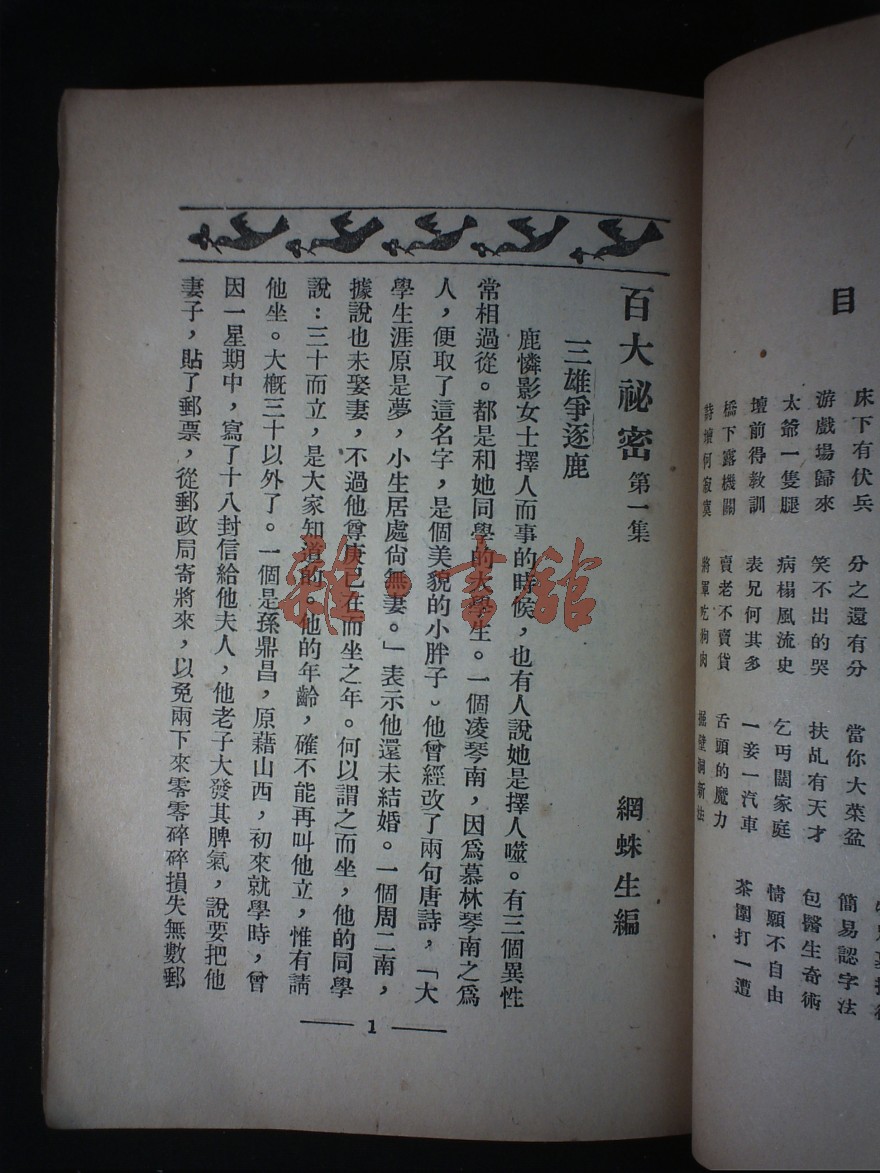 目
床下有伏兵
分之還有分
當你大菜盆
游戲場歸來
笑不出的哭
扶乩有天才
簡易認字法
太爺一隻腿
病榻風流史
乞丐闊家庭
包醫生奇術
壇前得教訓
表兄何其多
一妾一汽車
情願不自由
橋下露機關
賣老不賣貨
舌頭的魔力
茶圍打一遭
將軍吃狗肉
百大祕密 第一集 網蛛生編
三雄爭逐鹿
鹿憐影女士擇人而事的時候，也有人說她是擇人噬。有三個異性
常相過從。都是和她同學的大學生。一個凌琴南，因爲慕林琴南之爲
人，便取了這名字，是個美貌的小胖子。他曾經改了兩句唐詩，「大
學生涯原是夢，小生居處尙無妻。」表示他還未結婚。一個周二南，
據說也未娶妻，不過他尊庚已在而坐之年。何以謂之而坐，他的同學
說：三十而立，是大家知道的。他的年齡，確不能再叫他立，惟有請
他坐。大概三十以外了。一個是孫鼎昌，原藉山西，初來就學時，曾
因一星期中，寫了十八封信給他夫人，他老子大發其脾氣，說要把他
妻子，貼了郵票，從郵政局寄將來，以免兩下來零零碎碎損失無數郵
1
雜·書館